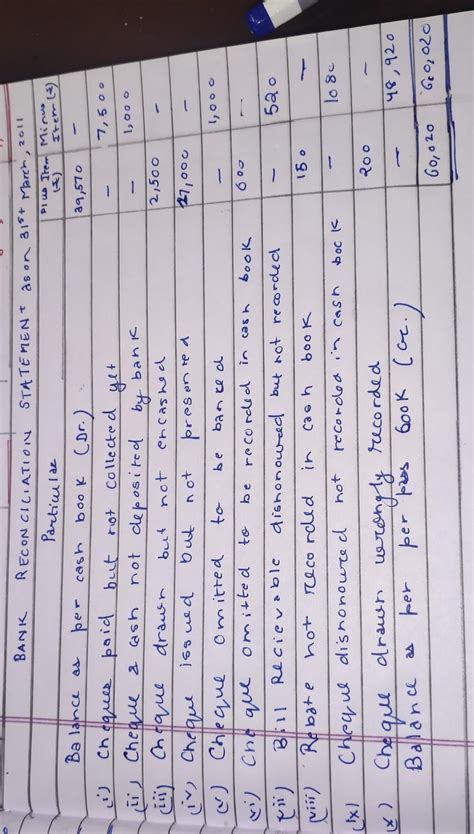 BANK RECONCILIATION STATEMENT as on 31st March, 2011
Particular Plus Item (₹) Minus Item (₹)
Balance as per cash book (Dr.) 39,570 -
(i) Cheques paid but not collected yet - 7,500
(ii) Cheque & cash not deposited by bank - 1,000
(iii) Cheque drawn but not encashed 2,500 -
(iv) Cheque issued but not presented 17,000 -
(v) Cheque omitted to be banked - 1,000
(vi) Cheque omitted to be recorded in cash book 600 -
(vii) Bill Recievable dishonoured but not recorded - 520
(viii) Rebate not recorded in cash book 150 -
(ix) Cheque dishonoured not recorded in cash book - 1080
x) Cheque drawn wrongly recorded 200 -
Balance as per pass book (cr.) - 48,920
60,020 60,020